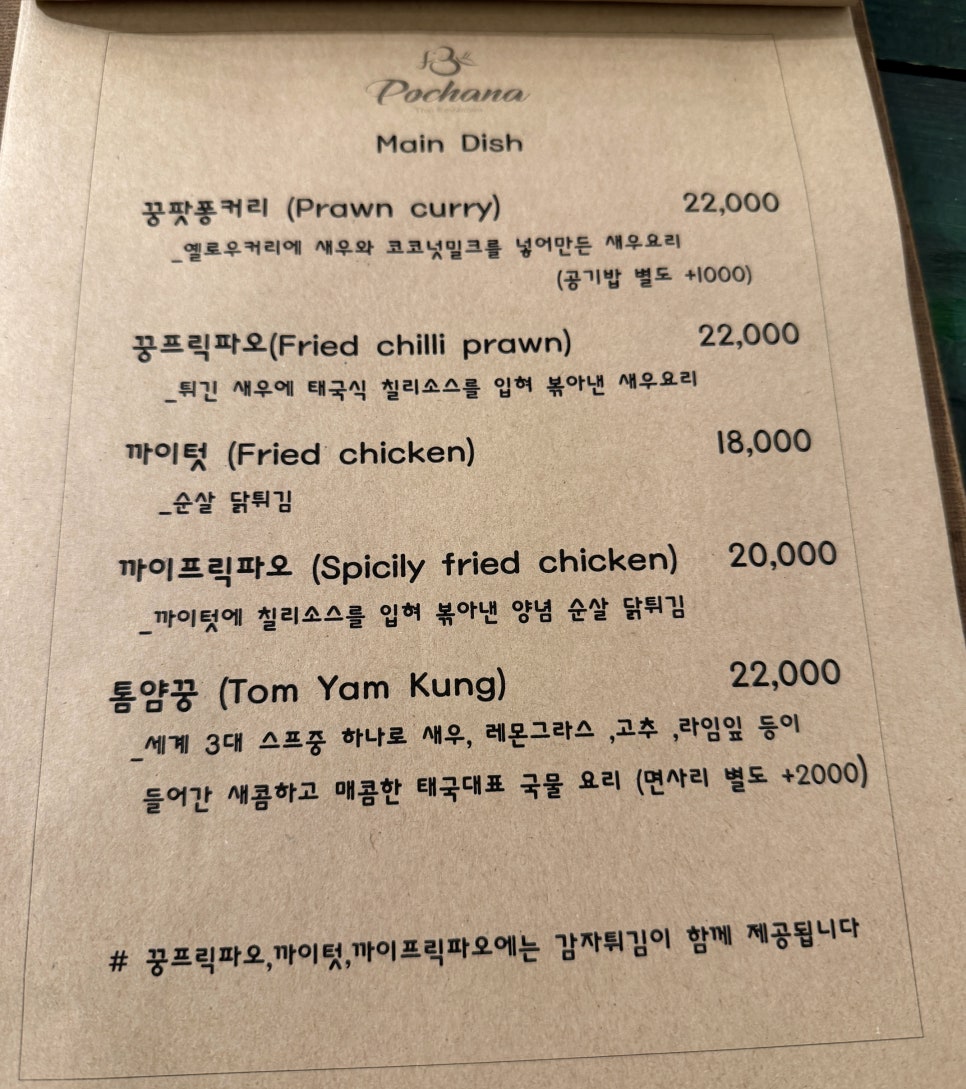 Pochana
Main Dish
꿍팟퐁커리 (Prawn curry) 22,000
_옐로우커리에 새우와 코코넛밀크를 넣어만든 새우요리
(공기밥 별도 +1000)
꿍프릭파오(Fried chilli prawn) 22,000
_튀긴 새우에 태국식 칠리소스를 입혀 볶아낸 새우요리
까이텃 (Fried chicken) 18,000
_순살 닭튀김
까이프릭파오 (Spicily fried chicken) 20,000
_까이텃에 칠리소스를 입혀 볶아낸 양념 순살 닭튀김
톰얌꿍 (Tom Yam Kung) 22,000
_세계 3대 스프중 하나로 새우, 레몬그라스 ,고추 ,라임잎 등이
들어간 새콤하고 매콤한 태국대표 국물 요리 (면사리 별도 +2000)
# 꿍프릭파오,까이텃,까이프릭파오에는 감자튀김이 함께 제공됩니다